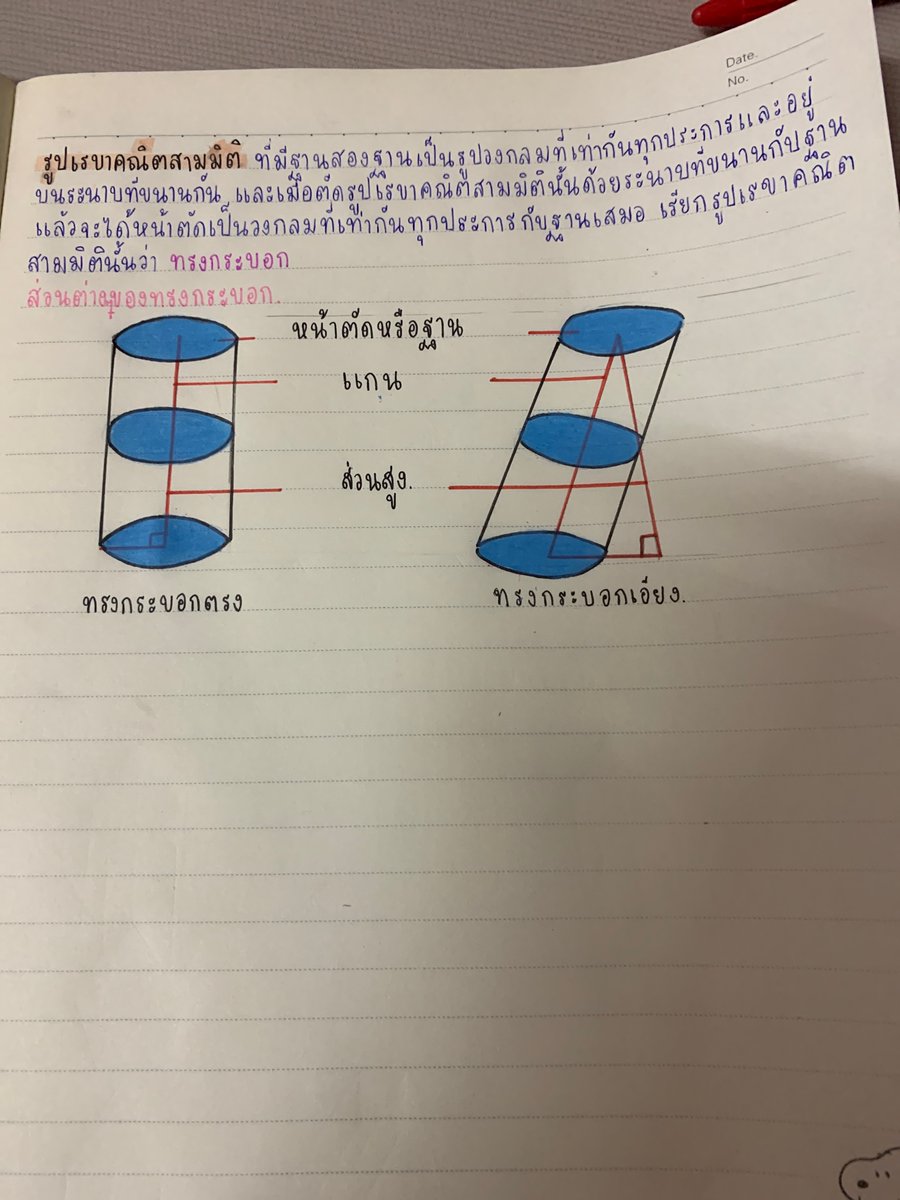 Date.
No.
รูปเรขาคณิตสามมิติ ที่มีฐานสองฐานเป็นรูปวงกลมที่เท่ากันทุกประการและอยู่
บนระนาบที่ขนานกัน และเมื่อตัดรูปเรขาคณิตสามมิตินั้นด้วยระนาบที่ขนานกับฐาน
แล้วจะได้หน้าตัดเป็นวงกลมที่เท่ากันทุกประการกับฐานเสมอ เรียกรูปเรขาคณิต
สามมิตินั้นว่า ทรงกระบอก
ส่วนต่างๆของทรงกระบอก.
หน้าตัดหรือฐาน
แกน
ส่วนสูง.
ทรงกระบอกตรง
ทรงกระบอกเอียง.